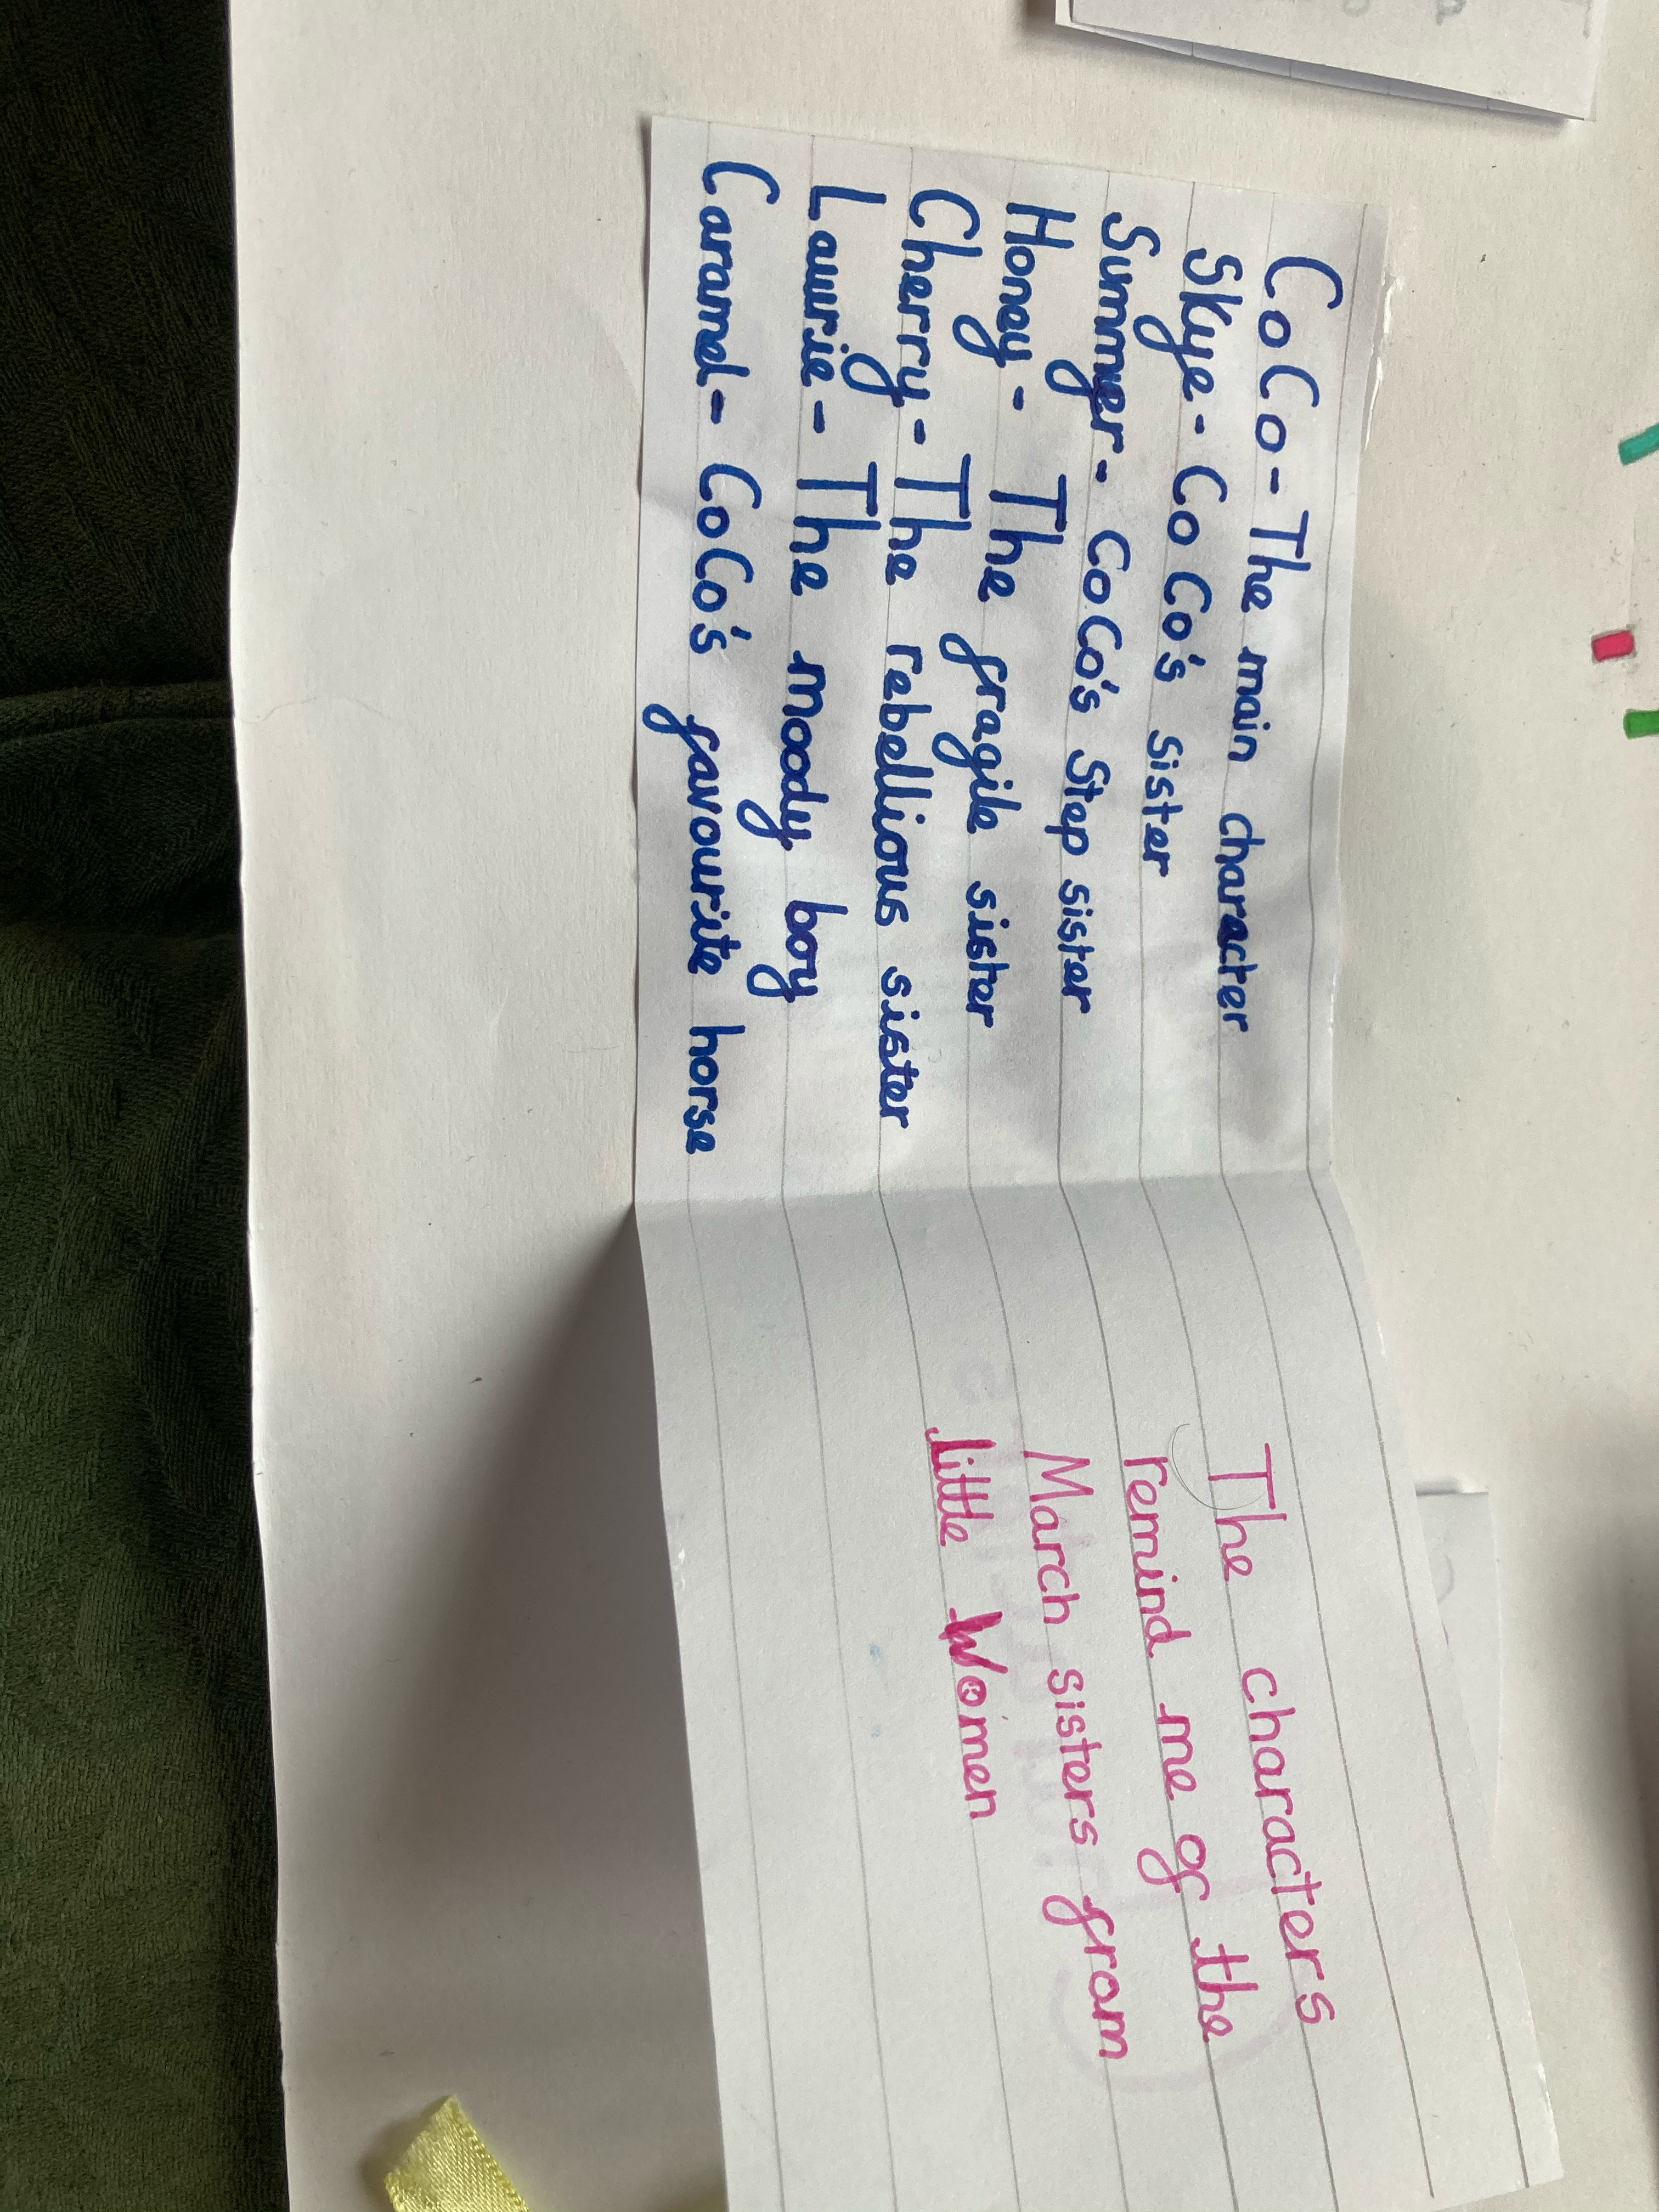 CoCo - The main character
Skye - CoCo's sister
Summer - CoCo's Step sister
Honey - The fragile sister
Cherry - The rebellious sister
Laurie - The moody boy
Caramel - CoCo's favourite horse
The characters
remind me of the
March sisters from
little Women